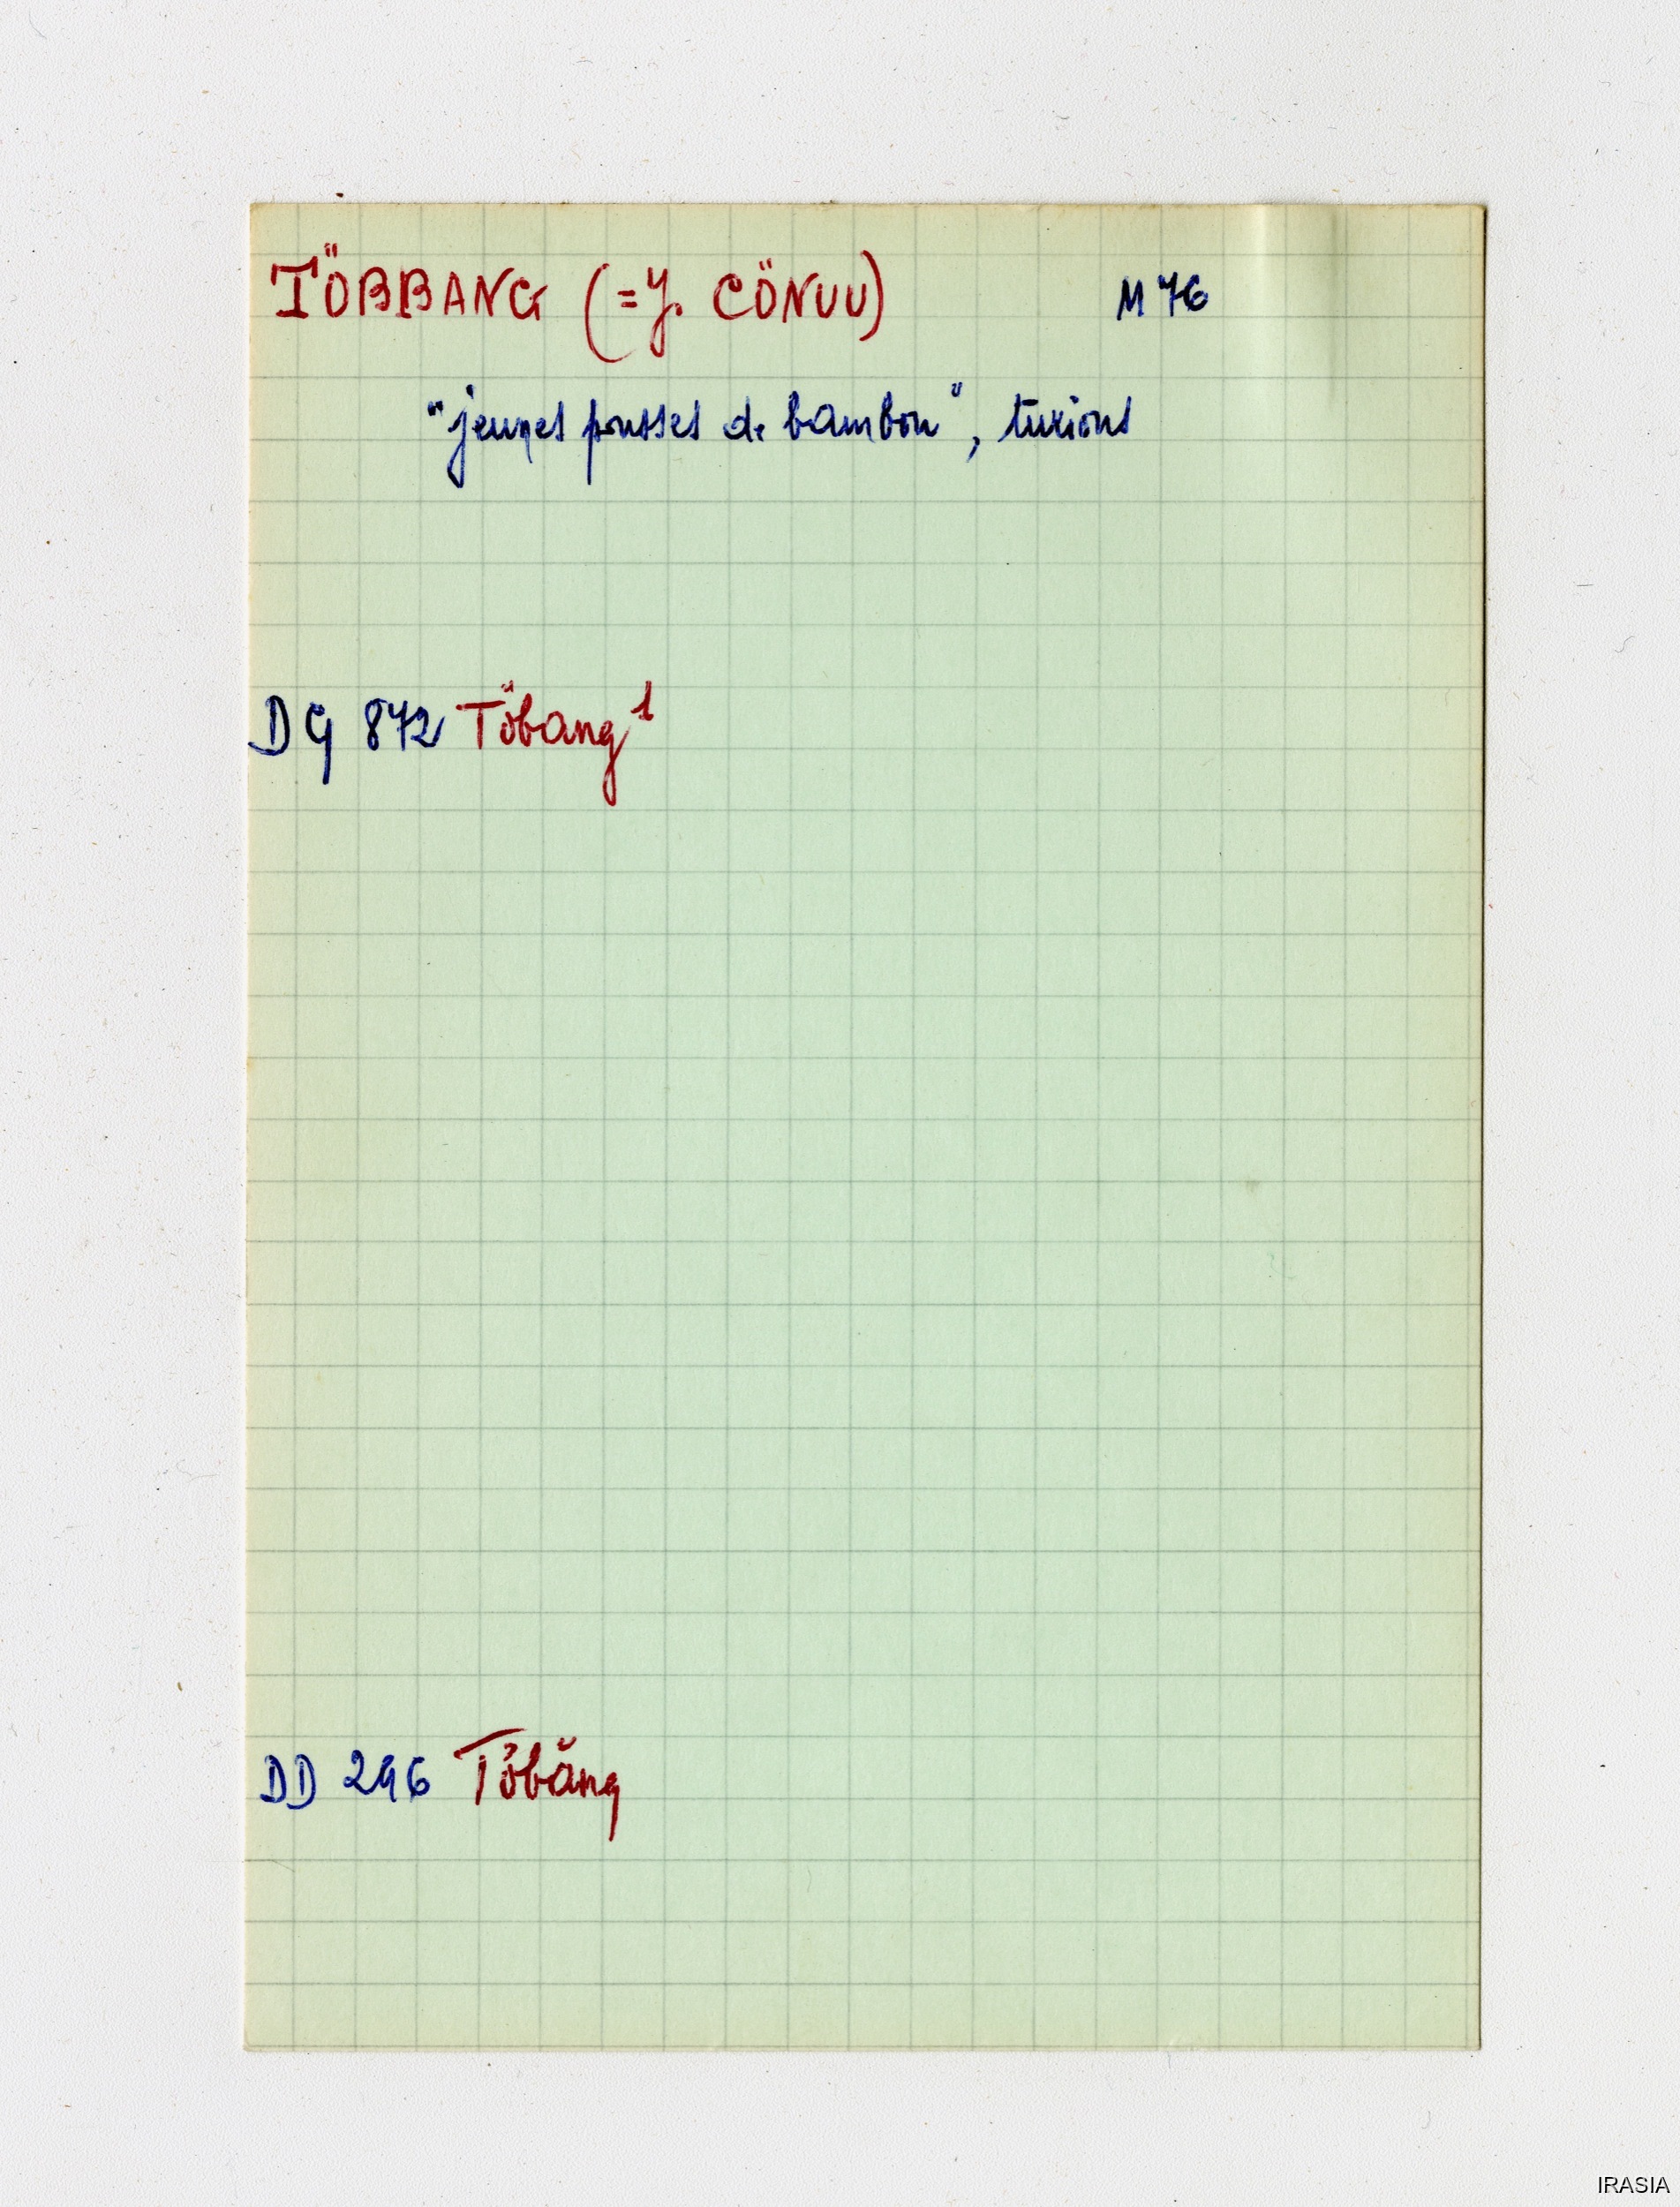 TÖBBANG (=Y. CÖNUU) M 76
"jeunes pousses de bambou", turions
DG 872 Töbang¹
DD 296 Töbăng
IRASIA